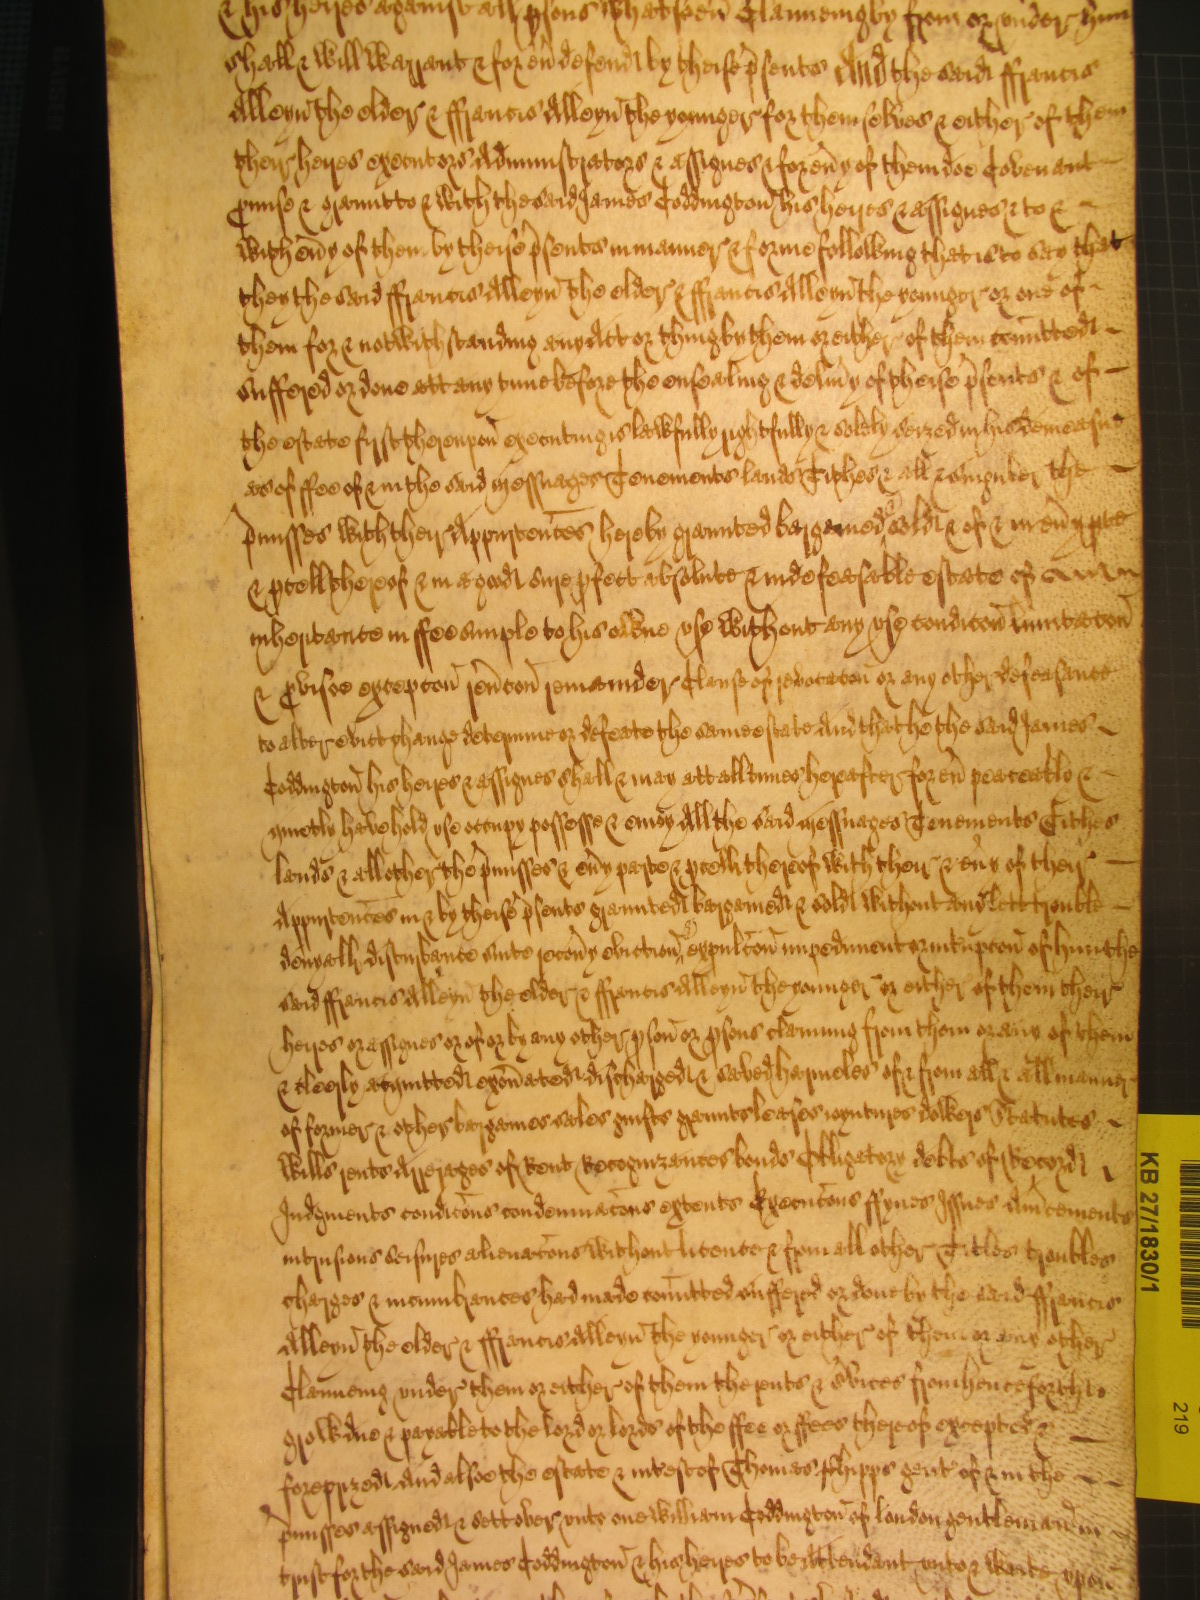 & his heyres against all psons whatsoev̄ Clameing by from or under him
shall & will warrant & for ev̄ defend by theise psents And the said ffrancis
Alleyn the elder & ffrancis Alleyn the younger for themselves & either of them
their heyres executors Administrators & assignes & for ev̄y of them doe Covenant
pmise & graunt to & with the said James Coddington his heyres & assignes & to &
with ev̄y of them by theise psents in manner & forme following that is to say that
they the said ffrancis Alleyn the elder & ffrancis Alleyn the younger or one of
them for & notwithstanding any Act or thing by them or either of them comitted
suffered or done att any time before the ensealing & delivy of theise psents & of
the estate first thereupon executing is lawfully rightfully & solely seized in his demeasne
as of ffee of & in the said Messuages Tenements lands Tithes & all & singuler the
pmisses with their Appurtennces hereby graunted bargained & sold & of & in ev̄y pte
& pcell thereof & in a good sure pfect absolute & indefeasable estate of
inheritance in ffee simple to his owne use without any use condicon limitacon
& pvisoe excepcon rev̄con remainder Clause of revocacon or any other defeasance
to alter evict change determine or defeate the same estate And that he the said James
Coddington his heyres & assignes shall & may att all times hereafter for ev̄ peaceably &
quietly have hold use occupy possesse & enioy All the said Messuages Tenements Tithes
lands & all other the pmisses & ev̄y parte & pcell thereof with their & ev̄y of their
Appurtennces in & by theise psents graunted bargained & sold without any lett trouble
denyall disturbance suite recov̄y eviction expulcon impediment or intrupcon of him the
said ffrancis Alleyn the elder & ffrancis Alleyn the younger or either of them their
heyres or assignes or of or by any other pson or psons claming from them or any of them
& cleerly acquitted exon̄ated discharged & saved harmeles of & from all & all manner
of former & other bargaines sales guifts graunts leases ioyntures dowers Statutes
Wills rents Arrerages of Rent Recognizances bonds Obligatory debts of Record
Judgments condicons condemnacons extents Execucons ffynes Issues Amcements
intrusions seisures alienacons without licence & from all other Titles troubles
charges & incumbrances had made comitted suffered or done by the said ffrancis
Alleyn the elder & ffrancis Alleyn the younger or either of them or any other
Clameing under them or either of them the rents & svices from henceforth to
grow due & payable to the lord or lords of the ffee or ffees thereof excepted &
foreprized And alsoe the estate & intest of Thomas Phipps gent of & in the
pmisses assigned & sett over unto one William Coddington of london gentleman in
trust for the said James Coddington & his heyres to be Attendant unto & waite upon
KB 27/1830/1
219